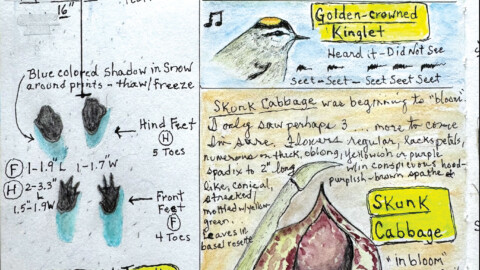 16"
Blue colored shadow in Snow
around prints - thaw/freeze
Hind Feet
H
5 Toes
F 1-1.9"L 1-1.7"W
H 2-3.3"L
1.5-1.9"W
Front
Feet
F
4 Toes
Golden-crowned
Kinglet
Heard it - Did Not See
Seet - Seet - Seet Seet Seet
Skunk Cabbage was beginning to "bloom".
I only saw perhaps 3 ... more to come
I'm sure. Flowers regular, lacks petals,
numerous on thick, oblong, yellowish or purple
spadix to 2" long w/in conspicuous hood-
like, conical, purplish-brown spathe
streaked,
mottled w/yellow
green.
Leaves in
basal rosette
Skunk
Cabbage
"in bloom"